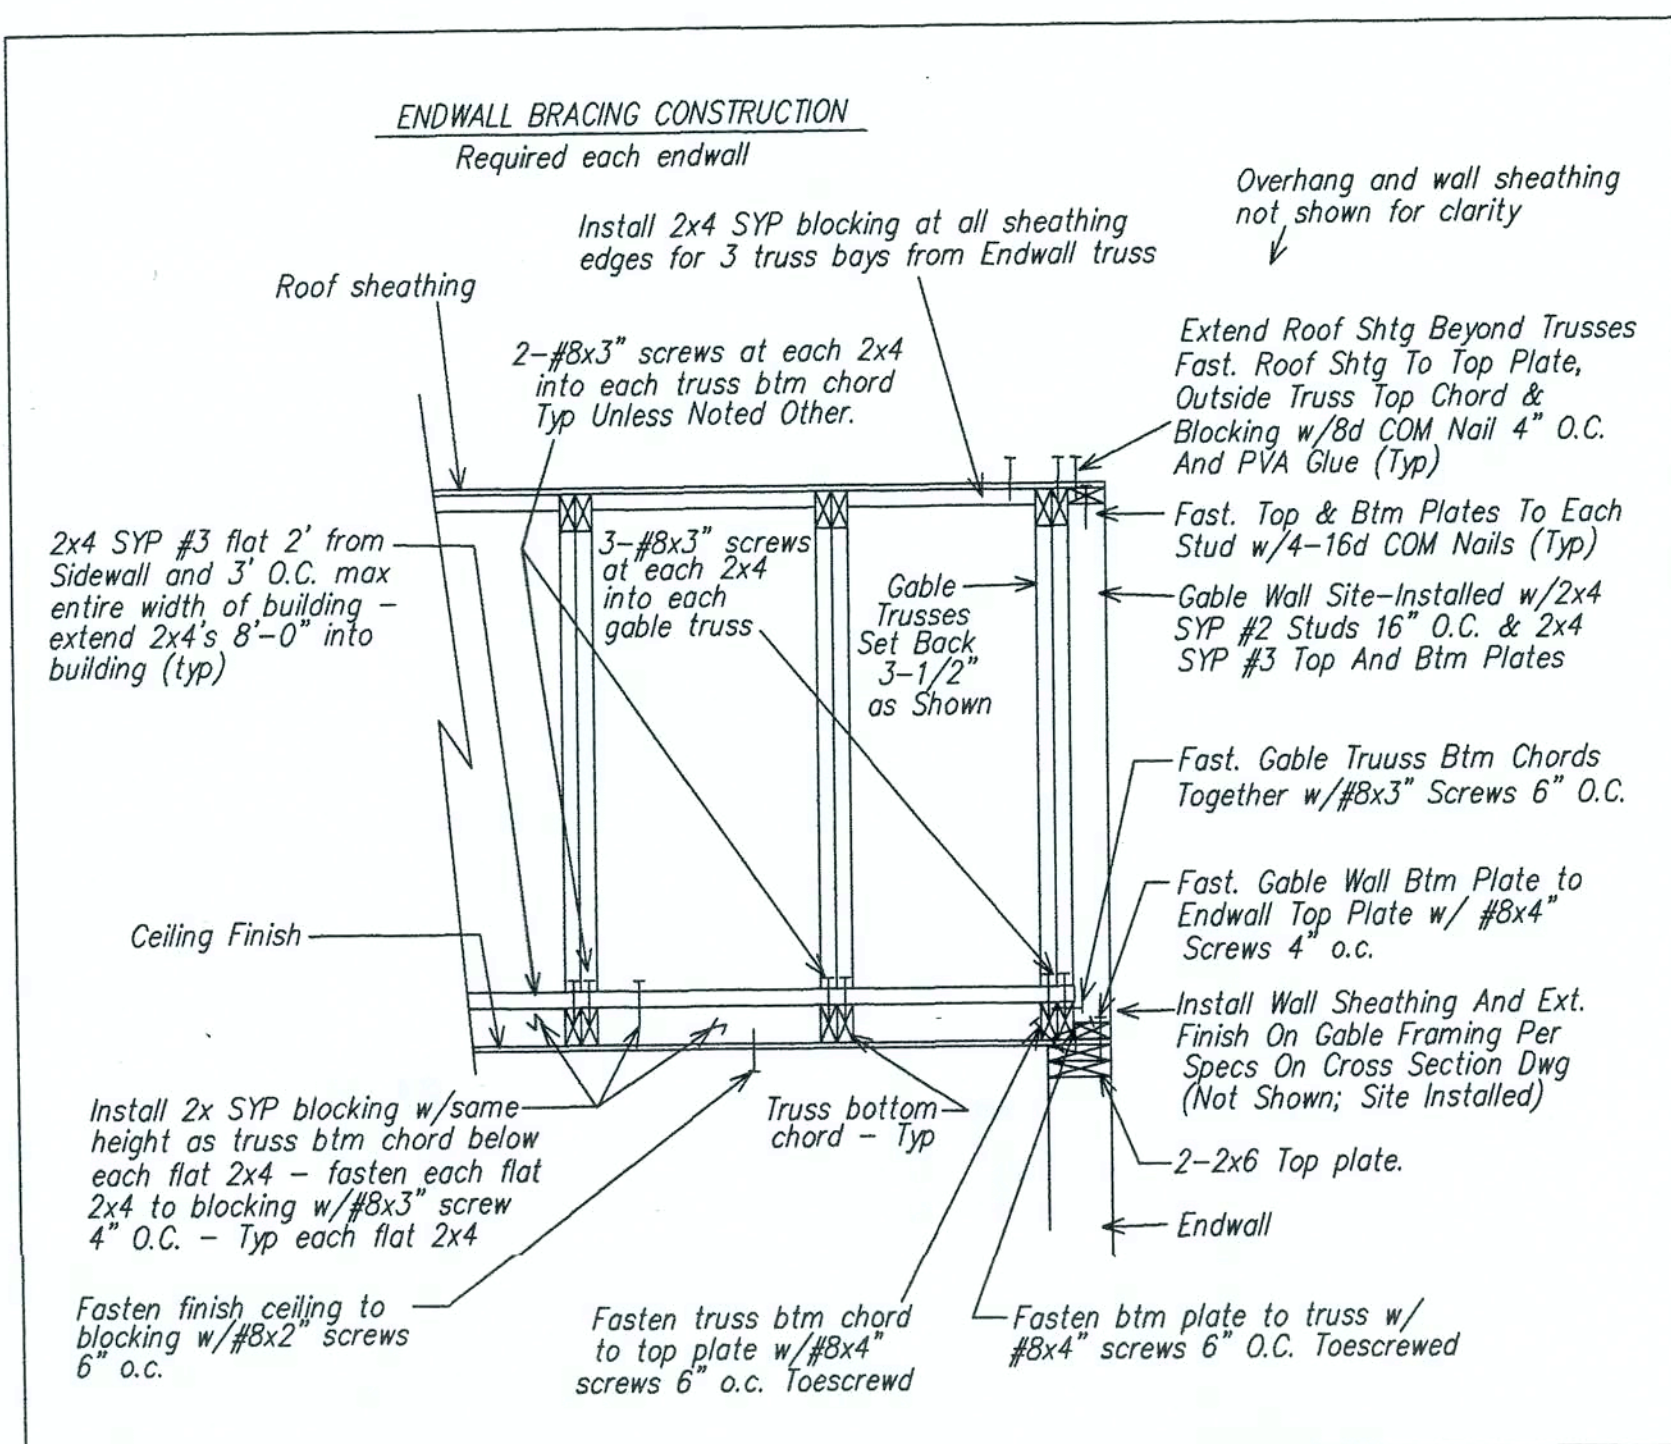 ENDWALL BRACING CONSTRUCTION
Required each endwall
Overhang and wall sheathing
not shown for clarity
Install 2x4 SYP blocking at all sheathing
edges for 3 truss bays from Endwall truss
Roof sheathing
2-#8x3" screws at each 2x4
into each truss btm chord
Typ Unless Noted Other.
Extend Roof Shtg Beyond Trusses
Fast. Roof Shtg To Top Plate,
Outside Truss Top Chord &
Blocking w/8d COM Nail 4" O.C.
And PVA Glue (Typ)
Fast. Top & Btm Plates To Each
Stud w/4-16d COM Nails (Typ)
2x4 SYP #3 flat 2' from
Sidewall and 3' O.C. max
entire width of building -
extend 2x4's 8'-0" into
building (typ)
3-#8x3" screws
at each 2x4
into each
gable truss
Gable
Trusses
Set Back
3-1/2"
as Shown
Gable Wall Site-Installed w/2x4
SYP #2 Studs 16" O.C. & 2x4
SYP #3 Top And Btm Plates
Fast. Gable Truuss Btm Chords
Together w/#8x3" Screws 6" O.C.
Fast. Gable Wall Btm Plate to
Endwall Top Plate w/ #8x4"
Screws 4" o.c.
Ceiling Finish
Install Wall Sheathing And Ext.
Finish On Gable Framing Per
Specs On Cross Section Dwg
(Not Shown; Site Installed)
Install 2x SYP blocking w/same
height as truss btm chord below
each flat 2x4 - fasten each flat
2x4 to blocking w/#8x3" screw
4" O.C. - Typ each flat 2x4
Truss bottom
chord - Typ
2-2x6 Top plate.
Endwall
Fasten finish ceiling to
blocking w/#8x2" screws
6" o.c.
Fasten truss btm chord
to top plate w/#8x4"
screws 6" o.c. Toescrewd
Fasten btm plate to truss w/
#8x4" screws 6" O.C. Toescrewed